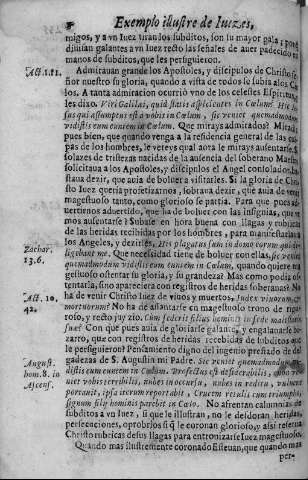 Exemplo illustre de Iuezes,
migos, y a vn Iuez tiran los subditos, son su mayor gala, pone
diuisan galantes a vn Iuez recto las señales de auer padecido
manos de subditos, que les persiguieron.
Act. 1. 11.
Admirauan grande los Apostoles, y discipulos de Christo se
ñor nuestro su gloria, quando a vista de todos se subia a los
los. A tanta admiracion ocurriò vno de los celestes Espiritus,
les dixo. Viri Galilæi, quid statis aspicientes in Cælum? Hic Ie
sus qui assumptus est a vobis in Cælum, sic veniet quemadmodum
vidistis eum euntem in Cælum. Que mirays admirados? Mirad,
pues bien, que quando venga a la residencia general de las cul
pas de los hombres, le vereys qual aora le mirays ausentarse.
solazes de tristezas nacidas de la ausencia del soberano Maestro
solicitaua a los Apostoles, y discipulos el Angel consolador,
staua dezir, que auia de boluer a visitarles. Si la gloria de Chris
to Iuez queria profetizarnos, sobraua dezir, que auia de venir
magestuoso tanto, como glorioso se partia. Para que pues ad
uertirnos aduertido, que ha de boluer con las insignias, que
mos ausentarse? Subase en hora buena con llagas, y rubricas
de las heridas recibidas por los hombres, para manifestarlas a
Zachar.
13. 6.
los Angeles, y dezirles, His plagatus sum in domo eorum qui di
ligebant me. Que necessidad tiene de boluer con ellas, sic veniet
quemadmodum vidistis eum euntem in Cælum, quando quiere
gestuoso ostentar su gloria, y su grandeza? Mas como podia os
tentarla, sino apareciera con registros de heridas soberanas? No
Act. 10.
42.
ha de venir Christo Iuez de viuos y muertos, Iudex viuorum, &
mortuorum? No ha de assentarse en magestuoso trono de rigu
roso, y recto juyzio, Cum sederit filius hominis in sede maiestatis
suæ? Con que pues auia de gloriarse galante, y engalanarse bi
zarro, que con registros de heridas recebidas de subditos que
le persiguieron? Pensamiento digno del ingenio preñado de de
August.
hom. 8. in
Ascens.
gadezas de S. Augustin mi Padre. Sic veniet quemadmodum vi
distis eum euntem in Cælum. Profectus est desiderabilis,
uiet vobis terribilis, nubes in occursu, nubes in reditu, vulnera
portauit, ipsa iterum reportabit, Crucem retulit cum triumpho,
signum filij hominis parebit in Cælo. No afrentan calumnias de
subditos a vn Iuez, si que le illustran, no le desdoran heridas,
persecuciones, oprobrios si q̃ le coronan glorioso, y assi referua
Christo rubricas de sus llagas para entronizarse Iuez magestuoso.
Quando mas ilustremente coronado Esteuan, que quando mas
per-